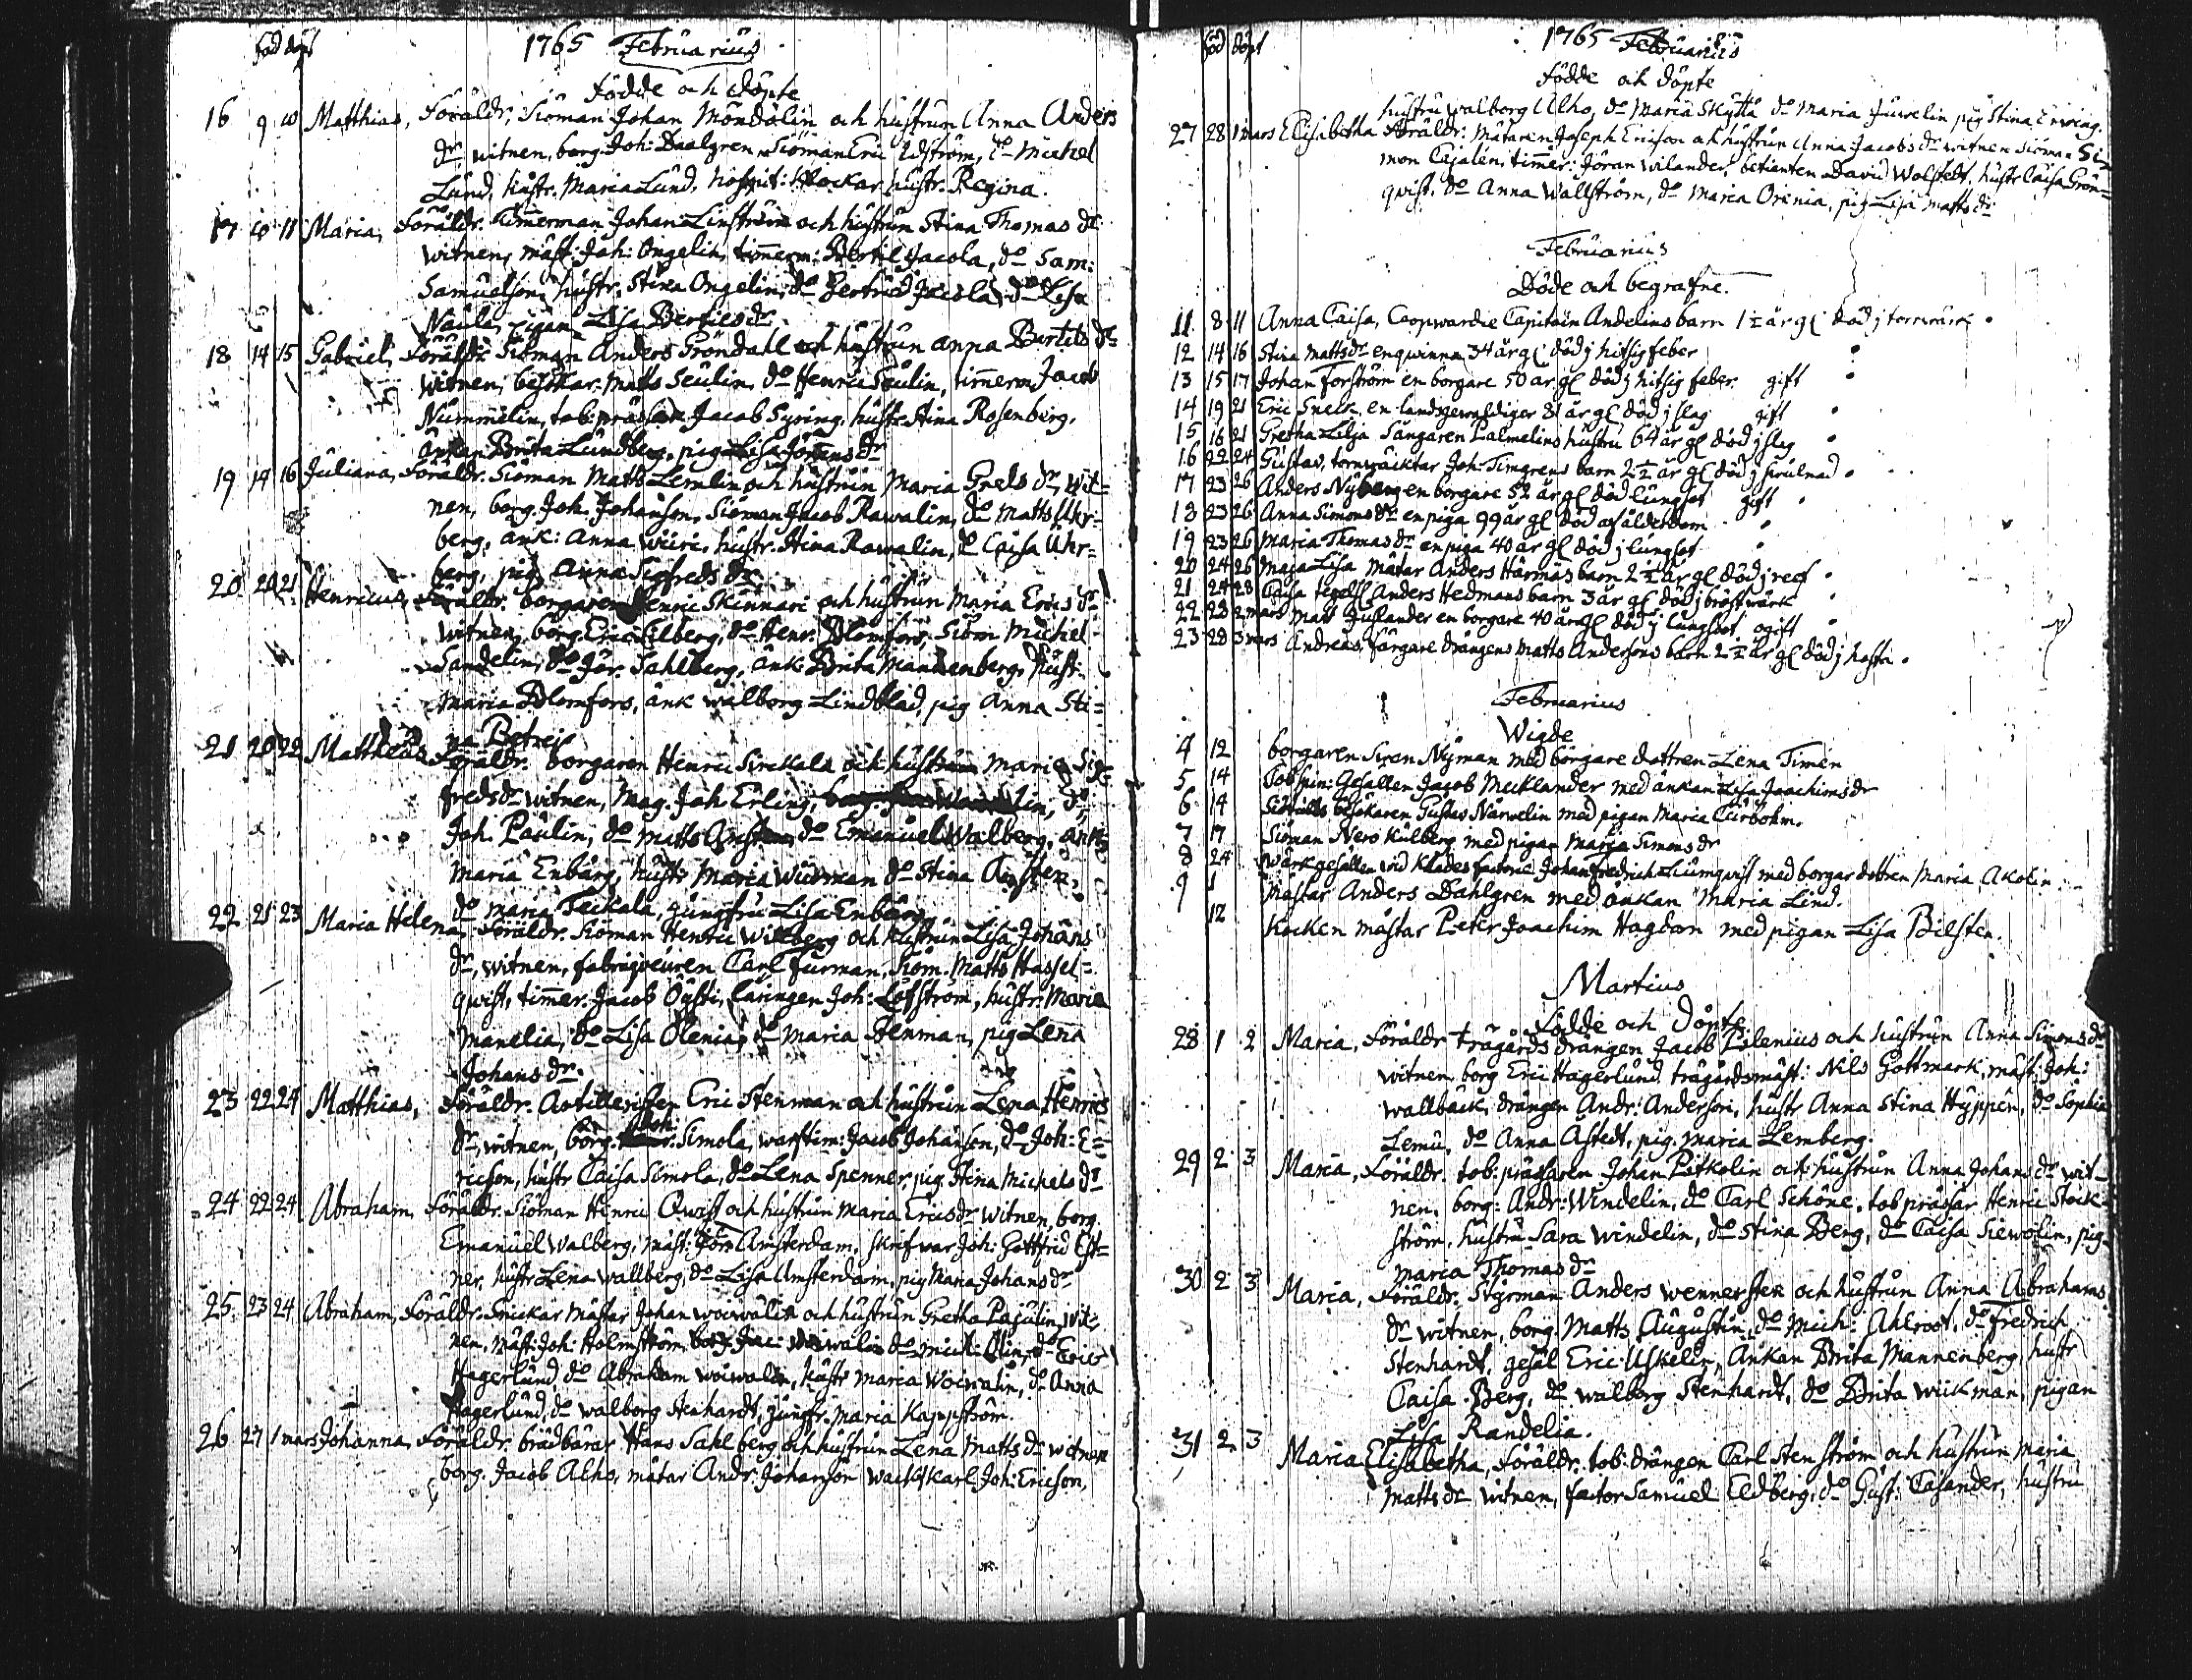 född döpt 1765 Februarius
födde och döpte
16 9 10 Matthias, Föräldr: Siöman Johan Mondolin och hustrun Anna Anders
dr witnen, borg. Joh: Daalgren, Siöman Eric Edström, do Michel
Lund, hustr. Maria Lund, hospit: klockar hustr. Regina.
17 10 11 Maria, Föräldr. Timmerman Johan Linström och hustrun Stina Thomas dr
witnen, mäst: Joh: Ongelin, timerm: Bertil Jacola, do Sam:
Samuelson, hustr. Stina Ongelin, do Gertrud Jacola, do Lisa
Naula, pigan Lisa Bertils dr
18 14 15 Gabriel, Föräldr. Siöman Anders Gröndahl och hustrun Anna Bertils dr
witnen, besökar. Matts Seulin, do Henric Seulin, timerm Jacob
Nummelin, tob: prässar Jacob Syring, hustr. Stina Rosenberg,
änkan Brita Lundberg, piga Lisa Jörens dr
19 14 16 Juliana, Föräldr. Siöman Matts Lemlin och hustrun Maria Grels dr, wit=
nen, borg. Joh. Johanson, Siöman Jacob Rawalin, do Matts Uhr=
berg, änk: Anna Wiiri, hustr. Stina Rawalin, do Caisa Uhr=
berg, pig. Anna Sigfreds dr
20 20 21 Henricus, Föräldr. borgaren Henric Skinnari och hustrun Maria Erics dr
witnen, borg. Eric Lilberg, do Henr. Blomfors, Siöm Michel
Sandelin, do Jör. Sahlberg, änk Brita Mannenberg, hust.
Maria Blomfors, änk Walborg Lindblad, pig Anna Sti=
na Betrei
21 20 22 Mattheus Föräldr. borgaren Henric Sirckala och hustrun Maria Sig
freds dr witnen, Mag. Joh Erling, do
Joh. Paulin, do Matts do Emanuel Walberg, änk
Maria Enbärg, hustr Maria Wiurman do Stina
do Maria Teckala, jungfru Lisa Enbärg
22 21 23 Maria Helena, Föräldr. Siöman Henric Willberg och hustrun Lisa Johans
dr, witnen, fabriqoeuren Carl Furman, Siöm. Matts Hassel=
qwist, timer. Jacob Öysti, läringen Joh: Löfström, hustr. Maria
Manelia, do Lisa Olenia, do Maria Henman, pig Lena
Johans dr.
23 22 24 Matthias, Föräldr. Artilleristen Eric Stenman och hustrun Lena Henrics
dr, witnen, borg. Joh. Simola, warftim: Jacob Johanson, do Joh: E=
ricson, hustr Caisa Simola, do Lena Spenner, pig. Stina Michels dr
24 22 24 Abraham, Föräldr. Siöman Henric Qwist och hustrun Maria Erics dr witnen, borg.
Emanuel Walberg, mäst: Jöra Amsterdam, skrifvar Joh: Gottfrid Est=
ner, hustr Lena Wallberg, do Lisa Amsterdam, pig Maria Johans dr
25 23 24 Abraham, Föräldr. Snickar mästar Johan Woiwalin och hustrun Gretha Pajulin, wit=
nen, mäst: Joh: Holmström, do mich: Olin, do Eric
Hagerlund, do Abraham Woiwalin, hustr Maria Woiwalin, do Anna
Hagerlund, do Walborg Stenhardt, jungfr. Maria Kappström.
26 27 1 mars Johanna, Föräldr. brädbärar Hans Sahlberg och hustrun Lena Matts dr witnen
borg. Jacob Alho, mätar Andr: Johanson wacktkarl Joh: Ericson,
född döpt 1765 Februarius
födde och döpte
hustru Walborg Alho, do Maria Skyttä do Maria Juwelin pig Stina Enroing.
27 28 1 mars Elisabetha Föräldr: mätaren Joseph Ericson och hustrun Anna Jacobs dr witnen siöman Si=
mon Cajalen, timer: Jöran Wilander, betienten David Wolstedt, hustr Caisa Grön=
qwist, do Anna Wallström, do Maria Orenia, pig Lisa Matts dr
Februarius
Döde och begrafne.
11 8 11 Anna Caisa, Coopwardie Capitain Andelins barn 1½ år gl död j torrwärk
12 14 16 Stina Matts dr en qwinna 34 år gl död j hitsig feber
13 15 17 Johan Forström en borgare 50 år gl död j hitsig feber. gift
14 19 21 Eric Snelk en landzgewaldiger 81 år gl död j slag gift
15 16 21 Gretha Lilja Sångaren Palmelins hustru 64 år gl död j slag
16 22 24 Gustav, tornwäcktar Joh. Timgrens barn 2½ år gl död j swulnad
17 23 26 Anders Nyberg en borgare 52 år gl död lungsot gift
18 23 26 Anna Simons dr en piga 99 år gl död af ålderdom
19 23 26 Maria Thomas dr en piga 40 år gl död j lungsot
20 24 26 Maja Lisa mätar Anders Härmäs barn 2½ år gl död j ref
21 24 28 Caisa tegelsl Anders Hedmans barn 3 år gl död j bröstwärk
22 28 2 mars Matt Juslander en borgare 40 år gl död j lungsot ogift
23 28 3 mars Andreas, färgare drängens Matts Andersons barn 2½ år gl död j hosta
Februarius
Wigde
4 12 borgaren Siren Nyman med borgare dottren Lena Timen
5 14 Tobspin: Gesällen Jacob Mecklander med änkan Lisa Joachims dr
6 14 besökaren Gustas Närwelin med pigan Maria Curböhm.
7 17 Siöman Nero Kulberg med pigan Maria Simons dr
8 24 Wärkgesällen wid Klädes factorie Johan Fredrich Liumqwist med borgar dottren Maria Akolin
9 1 Mästar Anders Dahlgren med änkan Maria Lind.
12 Kocken mästar Peter Joachim Hagdorn med pigan Lisa Bilsten.
Martius
Födde och döpte
28 1 2 Maria, Föräldr trägårds drängen Jacob Pilenius och hustrun Anna Simons dr
witnen borg Eric Hagerlund, trägårdsmäst: Nils Gottmark, mäst: Joh:
Wallbäck, drängen Andr: Anderson, hustr Anna Stina Hyppen, do Sophia
Lemu, do Anna Astedt, pig. Maria Lemberg.
29 2 3 Maria, Föräldr. tob: prässaren Johan Pitkolin och hustrun Anna Johans dr wit=
nen, borg: Andr: Windelin, do Carl Schöne, tob prässar Henric Stock=
ström, hustru Sara Windelin, do Stina Berg, do Caisa Siewolin, pig.
Maria Thomas dr
30 2 3 Maria, Föräldr. Styrman Anders Wennersten och hustrun Anna Abrahams
dr witnen, borg. Matts Augustin, do Mich: Ahlroot, do Fredrich
Stenhardt, gesäl Eric Uskelin, Änkan Brita Mannenberg, hustr
Caisa Berg, do Walborg Stenhardt, do Brita Wiikman, pigan
Lisa Randelia.
31 2 3 Maria Elisabetha, Föräldr. tob: drängen Carl Stenström och hustrun Maria
Matts dr witnen, factor Samuel Eldberg, do Gust: Casander, hustru